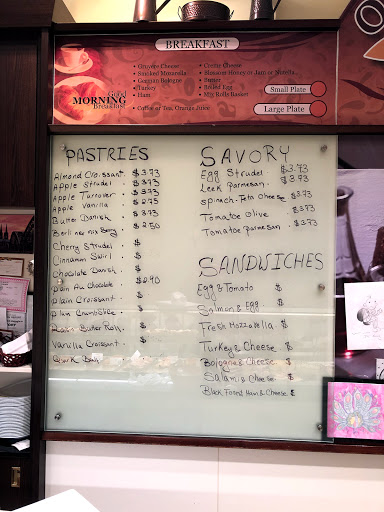 BREAKFAST
Gruyere Cheese
Smoked Mozarella
German Bologne
Turkey
Ham
Coffee or Tea, Orange Juice
Creme Cheese
Blossom Honey or Jam or Nutella
Butter
Boiled Egg
Mix Rolls Basket
Good
MORNING
Breakfast
Small Plate
Large Plate
PASTRIES
Almond Croissant . $3.73
Apple Strudel . $3.73
Apple Turnover . $3.73
Apple Vanilla . $2.75
Butter Danish . $3.73
Berliner Mix Berry $2.50
Cherry Strudel . $
Cinnamon Swirl . $
Chocolate Danish . $
Pain Au Chocolate $2.90
Plain Croissant . $
Plum Crumb Slice $
Plain Butter Roll . $
Vanilla Croissant . $
Quark Ball . $
SAVORY
Egg Strudel . $3.73
Leek parmesan . $3.73
Spinach-Feta Cheese $3.73
Tomatoe Olive . $3.73
Tomatoe parmesan . $3.73
SANDWICHES
Egg & Tomato $
Salmon & Egg . $
Fresh Mozzarella $
Turkey & Cheese $
Bologna & Cheese $
Salami & Cheese $
Black Forest Ham & Cheese $